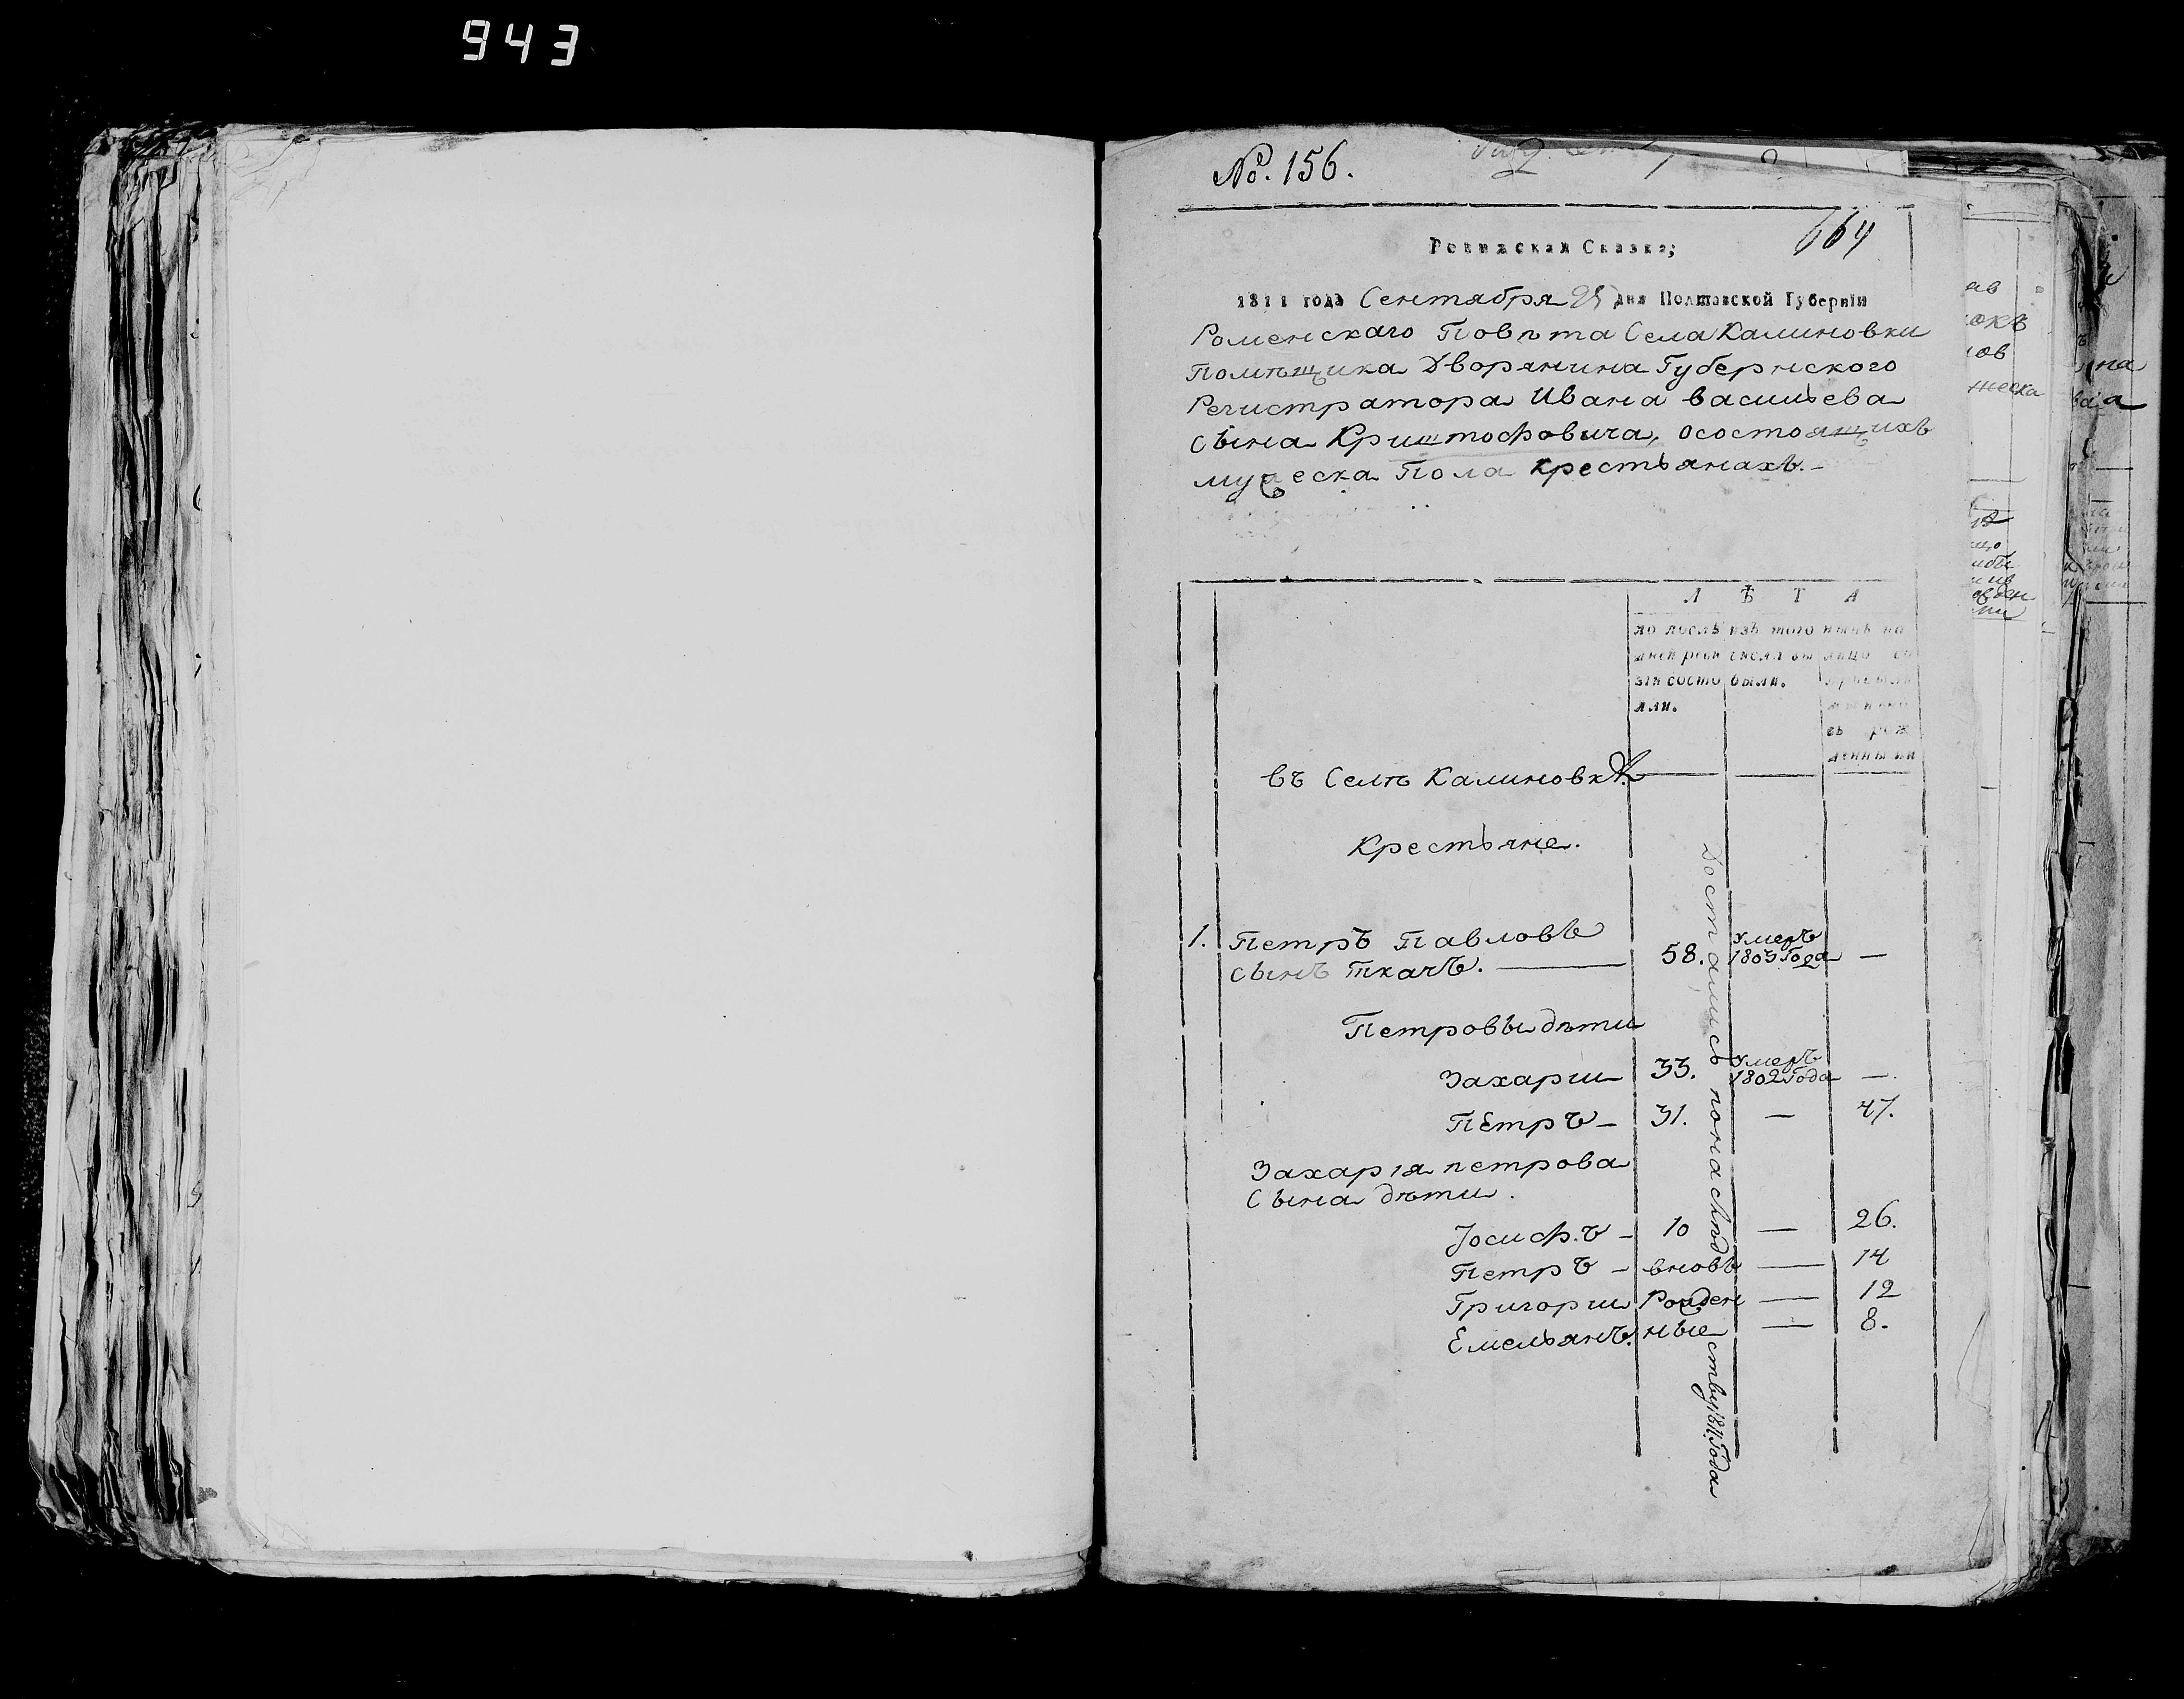 943
№. 156.
664
Ревижская Сказка;
1811 года Сентября 25 дня Полтавской Губернїи
Роменскаго Повѣта Села Калиновки
Помѣщика Дворянина Губернского
Регистратора Ивана васильева
сына Криштофовича, осостоящихъ
мужеска Пола крестьянахъ.-
Л Ѣ Т А
по послѣ
дней реви
зіи состо
яли.
изъ того
числа вы
были.
нынѣ на
лицо со
въ Селѣ Калиновкѣ.
Крестьяне.
1. Петръ Павловъ
сынъ ткачъ. — 58. Умеръ 1803 Года —
Петровы дѣти
Захарии 33. Умеръ 1802 Года —
Петръ — 31. — 47.
Захарія петрова
Сына дѣти.
Іосифъ — 10 — 26.
Петръ — вновь — 14
Григории Рожден — 12
Емельянъ. ные — 8.
Достались понаслѣдству 1811 Года